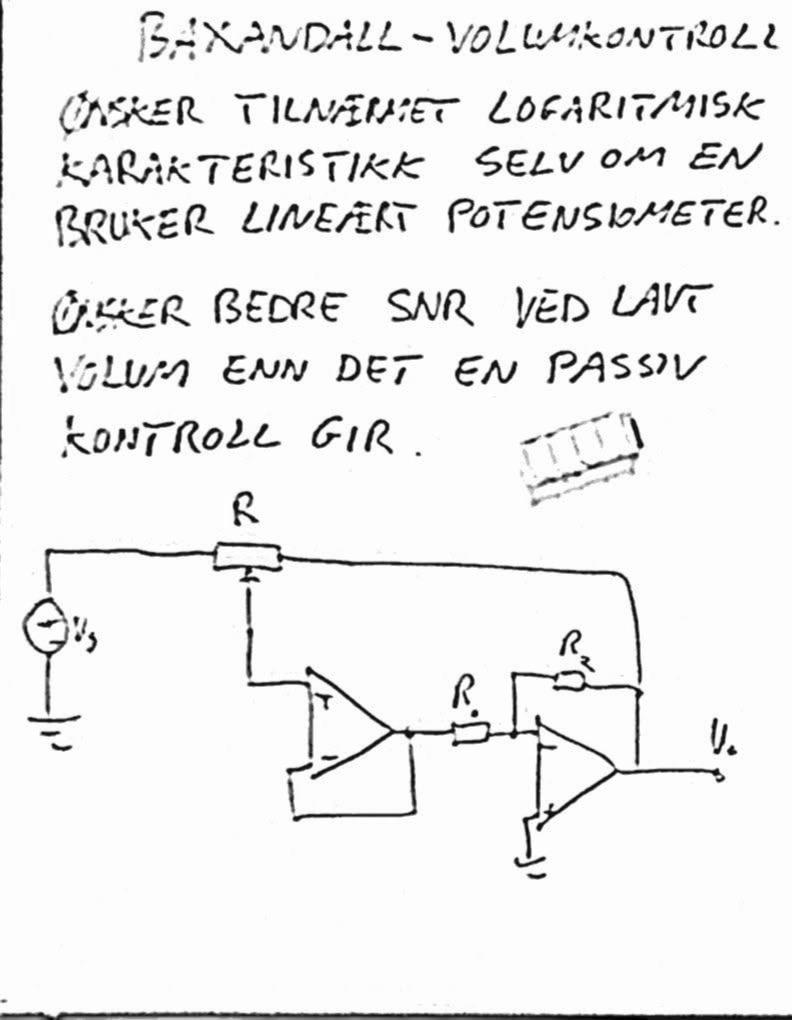 BAXANDALL - VOLUMKONTROLL
ØNSKER TILNÆRMET LOGARITMISK
KARAKTERISTIKK SELV OM EN
BRUKER LINEÆRT POTENSIOMETER.
ØNSKER BEDRE SNR VED LAVT
VOLUM ENN DET EN PASSIV
KONTROLL GIR.
R
Vs
+
-
R₁
R₂
-
+
Vo